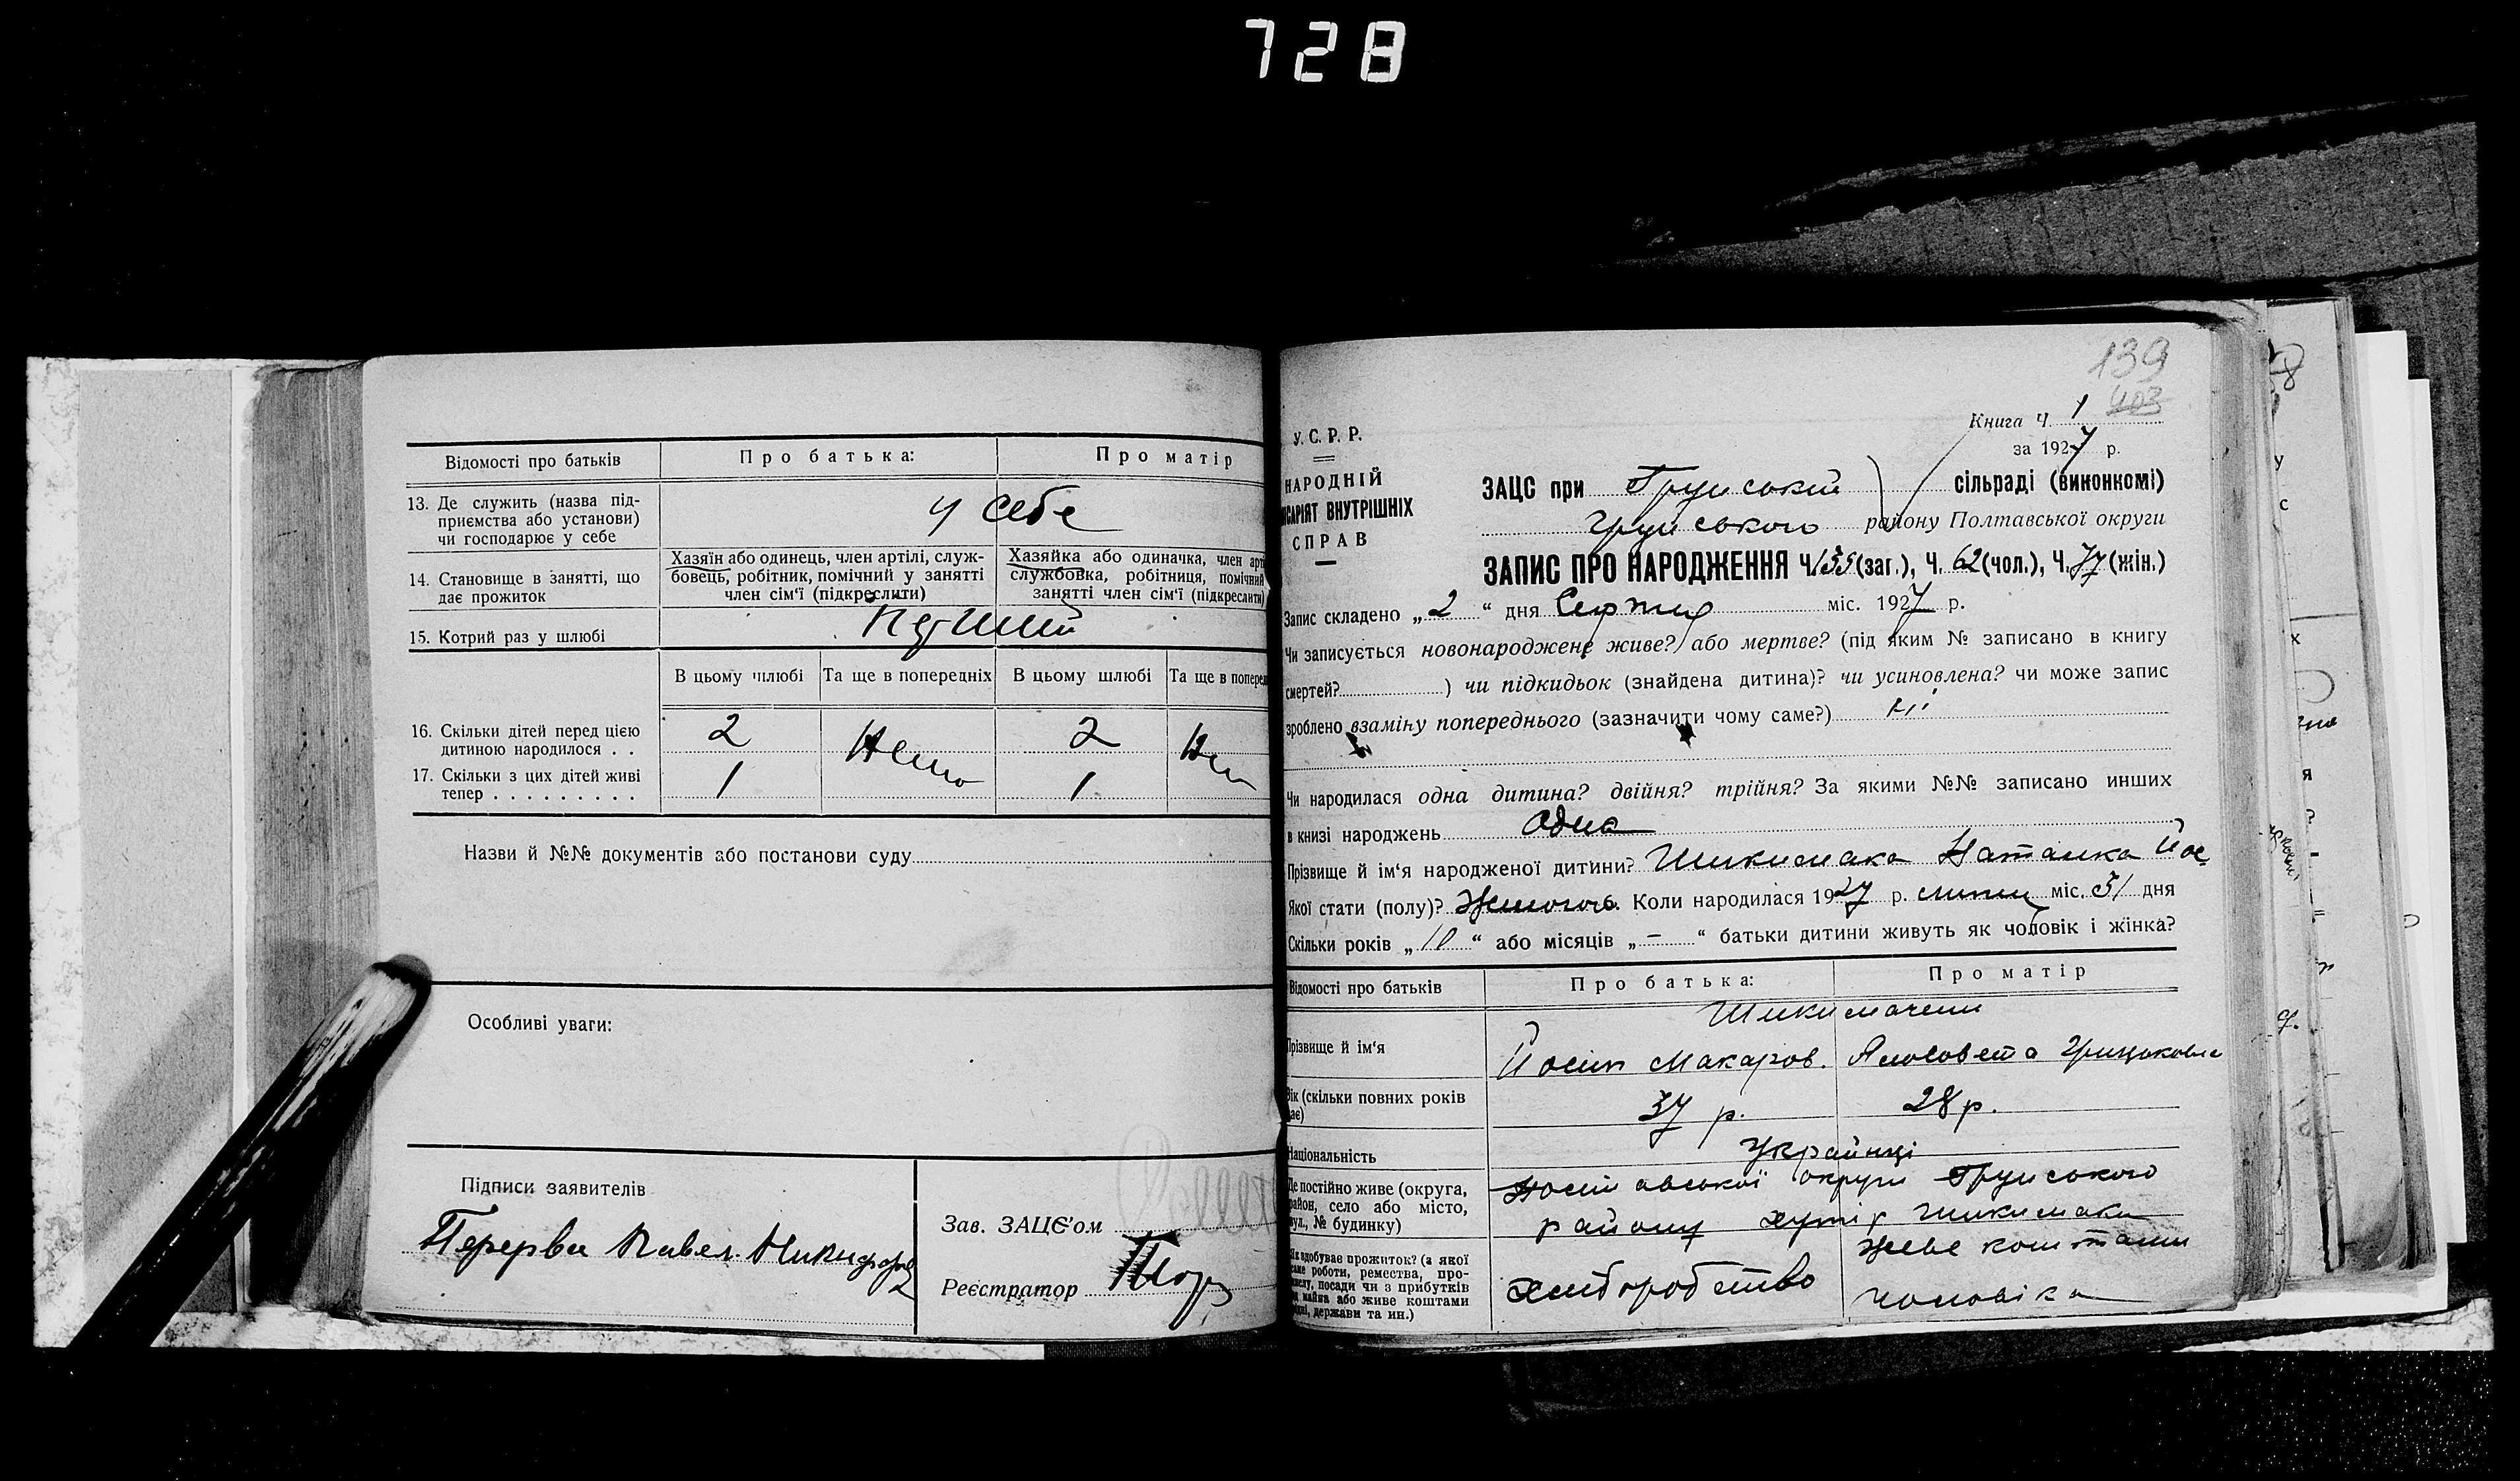 728
Відомості про батьків
Про батька:
Про матір
13. Де служить (назва під-
приємства або установи)
чи господарює у себе
у себе
14. Становище в занятті, що
дає прожиток
Хазяїн або одинець, член артілі, служ-
бовець, робітник, помічний у занятті
член сім'ї (підкреслити)
Хазяйка або одиначка, член арті
службовка, робітниця, помічний
занятті член сім'ї (підкреслити)
15. Котрий раз у шлюбі
В цьому шлюбі
Та ще в попередніх
В цьому шлюбі
Та ще в поперед
16. Скільки дітей перед цією
дитиною народилося . .
2
2
17. Скільки з цих дітей живі
тепер . . . . . . . . .
1
1
Назви й №№ документів або постанови суду
Особливі уваги:
Підписи заявителів
Перерва Павел
Зав. ЗАЦС'ом
Реєстратор
139
403
Книга Ч. 1
за 1927 р.
У.С.Р.Р.
НАРОДНІЙ
ІСАРІЯТ ВНУТРІШНІХ
СПРАВ
ЗАЦС при Грунський сільраді (виконкомі)
Грунського району Полтавської округи
ЗАПИС ПРО НАРОДЖЕННЯ Ч. 139 (заг.), Ч. 62 (чол.), Ч. 77 (жін.)
Запис складено „2“ дня Серпня міс. 1927 р.
Чи записується новонароджене живе?) або мертве? (під яким № записано в книгу
смертей?) чи підкидьок (знайдена дитина)? чи усиновлена? чи може запис
зроблено взаміну попереднього (зазначити чому саме?) ні
Чи народилася одна дитина? двійня? трійня? За якими №№ записано инших
в книзі народжень одна
Прізвище й ім'я народженої дитини? Шикимака Наталка Йос
Якої стати (полу)? Жіночої. Коли народилася 1927 р. липня міс. 31 дня
Скільки років „10“ або місяців „–“ батьки дитини живуть як чоловік і жінка?
Відомості про батьків
Про батька:
Про матір
Прізвище й ім'я
Йосип Макаров.
Вік (скільки повних років
має)
37 р.
28 р.
Національність
Українці
Де постійно живе (округа,
район, село або місто,
вул., № будинку)
Полтавської округи Грунського
району хутір Шикимаки
Як здобуває прожиток? (з якої
саме роботи, ремества, про-
мислу, посади чи з прибутків
од майна або живе коштами
рідні, держави та ин.)
хліборобство
живе коштами
чоловіка